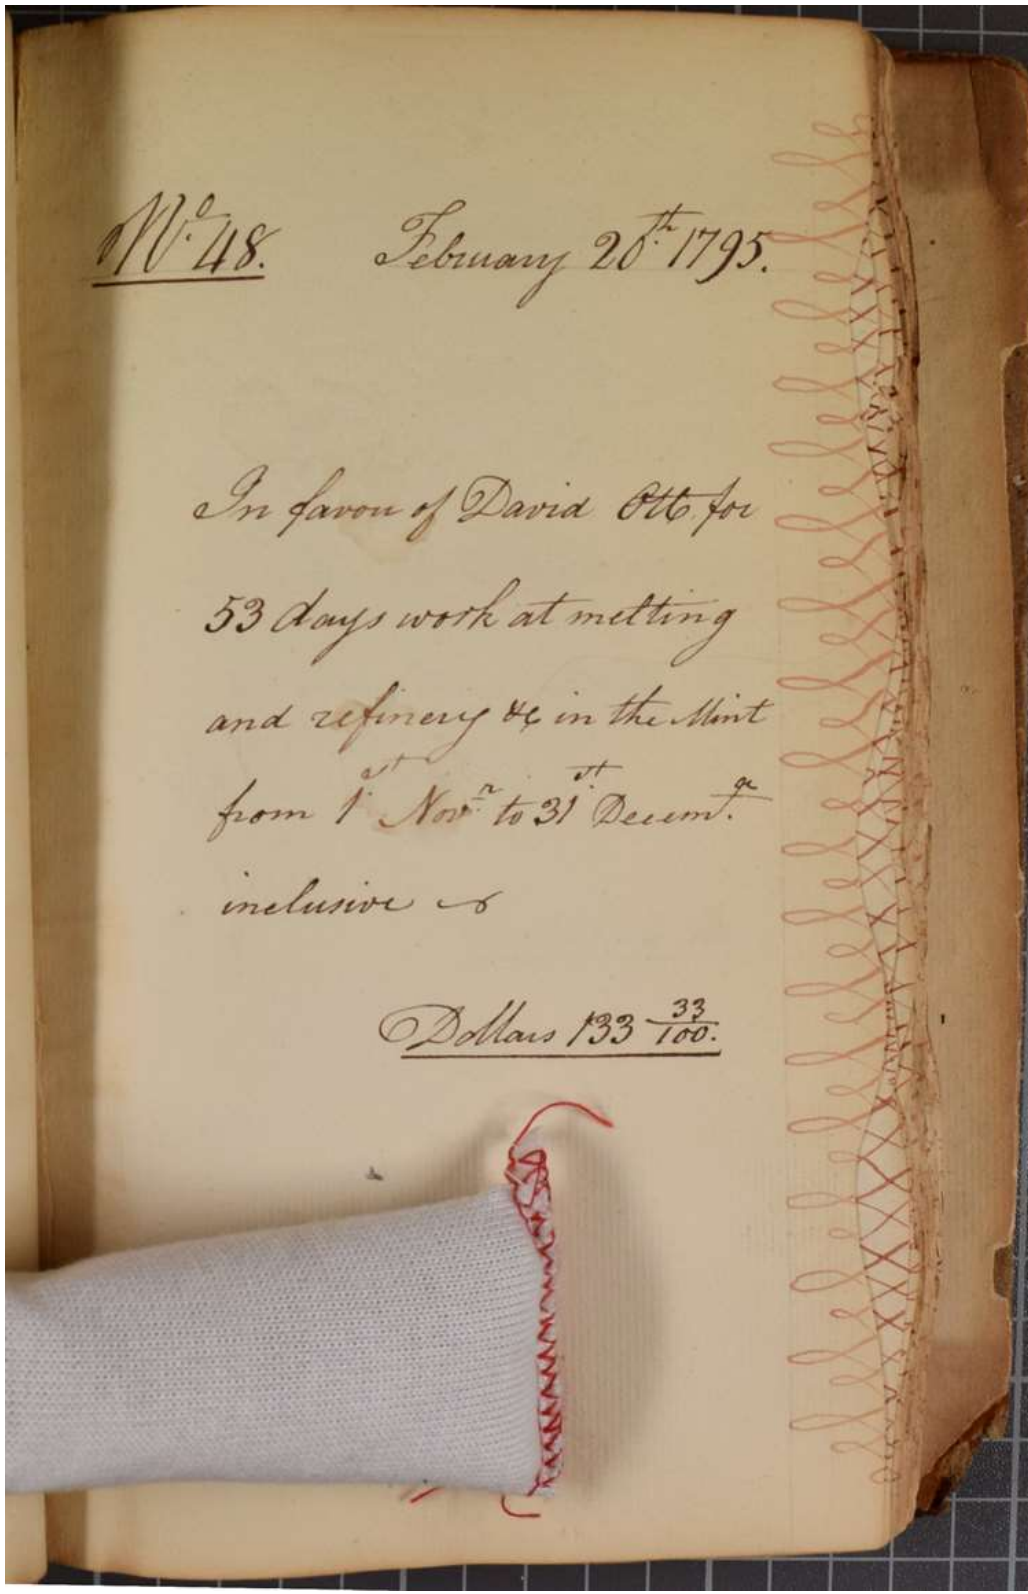 No. 48. February 20th. 1795.
In favou of David Ott for
53 days work at melting
and refinery &c in the Mint
from 1st Novr. to 31st Decemr.
inclusive
Dollars 133 33/100.